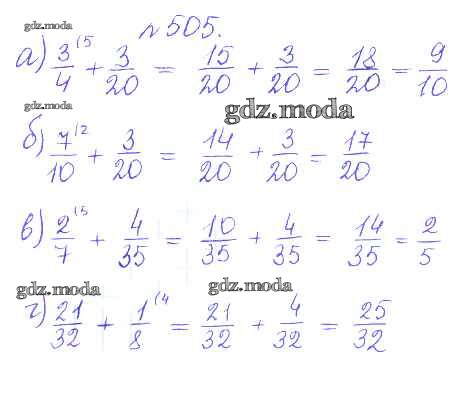 gdz.moda
№505.
а) 3/4 (5 + 3/20 = 15/20 + 3/20 = 18/20 = 9/10
gdz.moda
gdz.moda
б) 7/10 (2 + 3/20 = 14/20 + 3/20 = 17/20
в) 2/7 (5 + 4/35 = 10/35 + 4/35 = 14/35 = 2/5
gdz.moda
gdz.moda
г) 21/32 + 1/8 (4 = 21/32 + 4/32 = 25/32